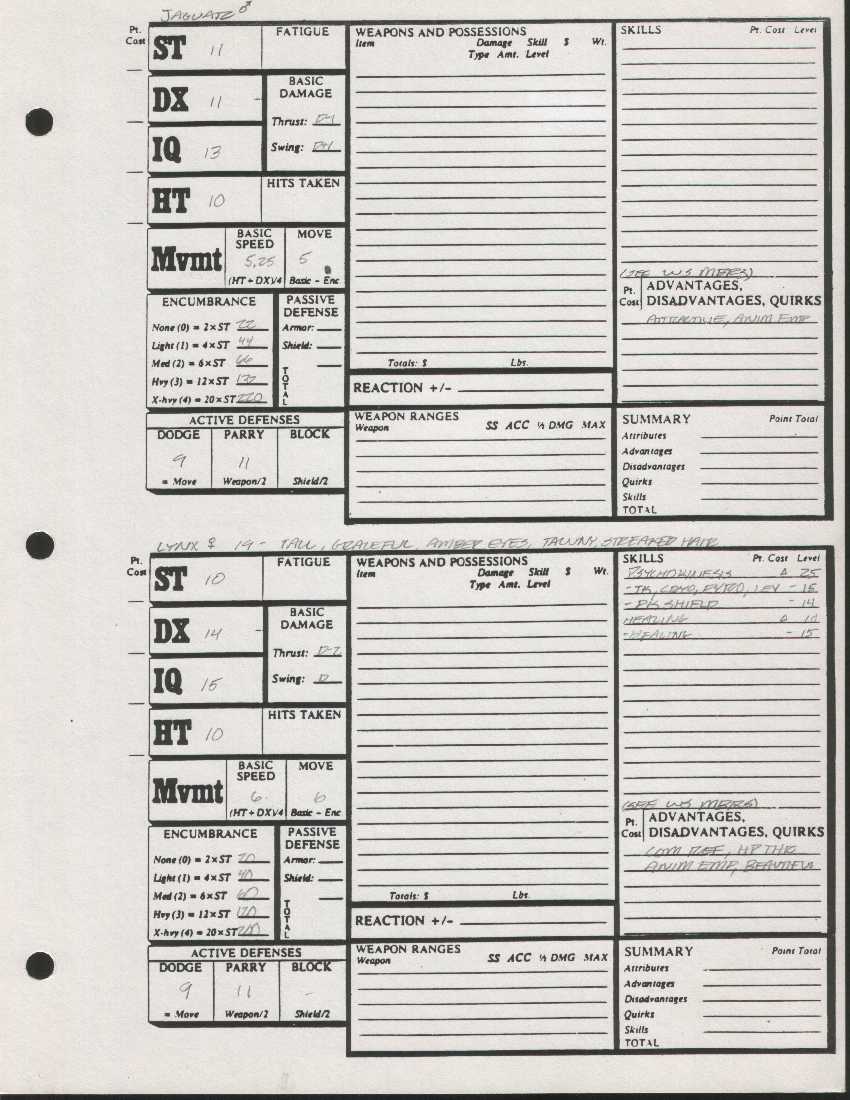 JAGUAR ♂
Pt. Cost
ST 11
FATIGUE
DX 11 -
BASIC DAMAGE
Thrust: D-1
Swing: D+1
IQ 13
HT 10
HITS TAKEN
Mvmt
BASIC SPEED
5.25
(HT + DX)/4
MOVE
5
Basic - Enc
ENCUMBRANCE
None (0) = 2 x ST 22
Light (1) = 4 x ST 44
Med (2) = 6 x ST 66
Hvy (3) = 12 x ST 132
X-hvy (4) = 20 x ST 220
PASSIVE DEFENSE
Armor:
Shield:
TOTAL
ACTIVE DEFENSES
DODGE PARRY BLOCK
9 11
= Move Weapon/2 Shield/2
WEAPONS AND POSSESSIONS
Item Damage Skill $ Wt.
Type Amt. Level
Totals: $ Lbs.
REACTION +/-
WEAPON RANGES
Weapon SS ACC ½ DMG MAX
SKILLS Pt. Cost Level
(SEE WS MBRS)
Pt. Cost
ADVANTAGES, DISADVANTAGES, QUIRKS
ATTRACTIVE, ANIM EMP
SUMMARY Point Total
Attributes
Advantages
Disadvantages
Quirks
Skills
TOTAL
LYNX ♀ 19 - TALL, GRACEFUL, AMBER EYES, TAWNY, STREAKED HAIR
Pt. Cost
ST 10
FATIGUE
DX 14 -
BASIC DAMAGE
Thrust: D-2
Swing: D
IQ 15
HT 10
HITS TAKEN
Mvmt
BASIC SPEED
6
(HT + DX)/4
MOVE
6
Basic - Enc
ENCUMBRANCE
None (0) = 2 x ST 20
Light (1) = 4 x ST 40
Med (2) = 6 x ST 60
Hvy (3) = 12 x ST 120
X-hvy (4) = 20 x ST 200
PASSIVE DEFENSE
Armor:
Shield:
TOTAL
ACTIVE DEFENSES
DODGE PARRY BLOCK
9 11 -
= Move Weapon/2 Shield/2
WEAPONS AND POSSESSIONS
Item Damage Skill $ Wt.
Type Amt. Level
Totals: $ Lbs.
REACTION +/-
WEAPON RANGES
Weapon SS ACC ½ DMG MAX
SKILLS Pt. Cost Level
PSYCHOKINESIS 25
- TK, CRYO, PYRO, LEV - 15
- PK SHIELD - 14
HEALING
- HEALING - 15
(SEE WS MBRS)
Pt. Cost
ADVANTAGES, DISADVANTAGES, QUIRKS
COM REF, HP THR
ANIM EMP, BEAUTIFUL
SUMMARY Point Total
Attributes
Advantages
Disadvantages
Quirks
Skills
TOTAL